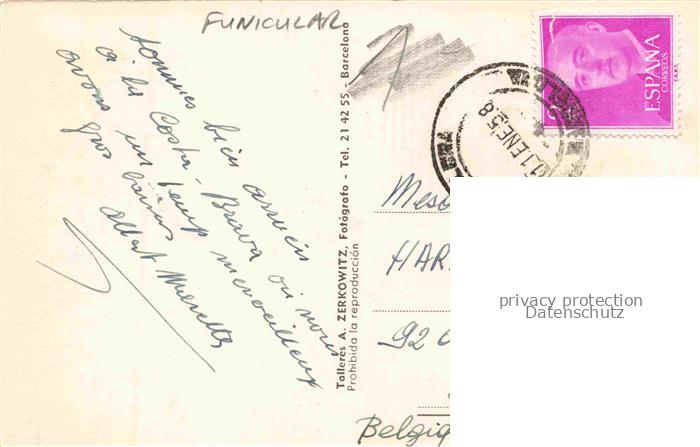 FUNICULAR
sommes bien arrivés
à la Costa-Brava où nous
avons un temps merveilleux
gros baisers
Albert
Talleres A. ZERKOWITZ, Fotógrafo - Tel. 21 42 55. - Barcelona
Prohibida la reproducción
ESPAÑA
CORREOS
11 ENE 58
HAR
92
Belgiq
privacy protection
Datenschutz